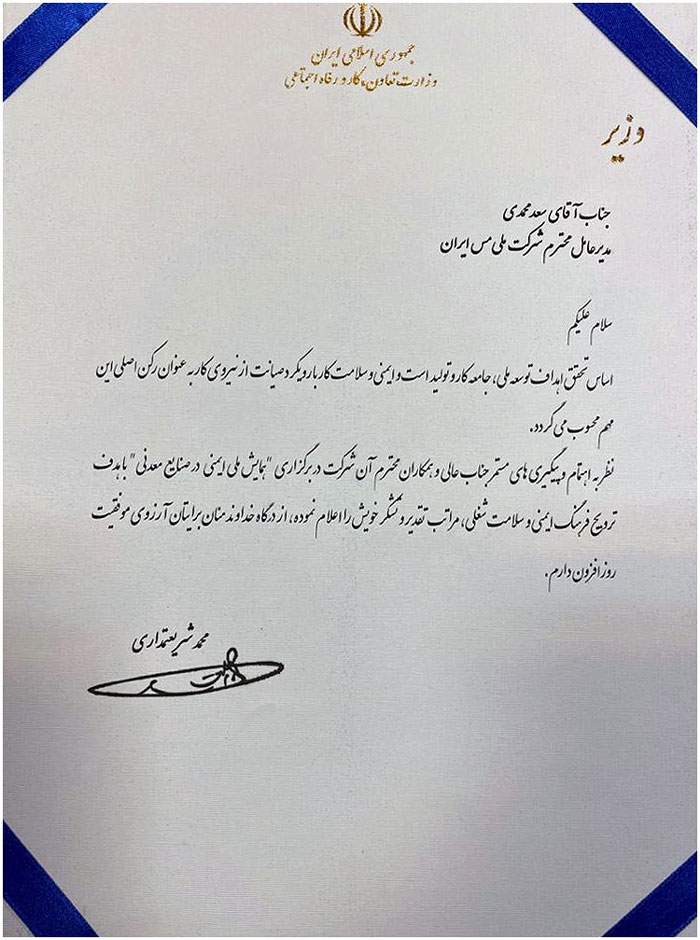 جمهوری اسلامی ایران
وزارت تعاون، کار و رفاه اجتماعی
وزیر
جناب آقای سعدمحمدی
مدیرعامل محترم شرکت ملی مس ایران
سلام علیکم
اساس تحقق اهداف توسعه ملی، جامعه کار و تولید است و ایمنی و سلامت کار با رویکرد صیانت از نیروی کار به عنوان رکن اصلی این
مهم محسوب می گردد.
نظر به اهتمام و پیگیری های مستمر جناب عالی و همکاران محترم آن شرکت در برگزاری "همایش ملی ایمنی در صنایع معدنی" با هدف
ترویج فرهنگ ایمنی و سلامت شغلی، مراتب تقدیر و تشکر خویش را اعلام نموده، از درگاه خداوند منان برایتان آرزوی موفقیت
روزافزون دارم.
محمد شریعتمداری